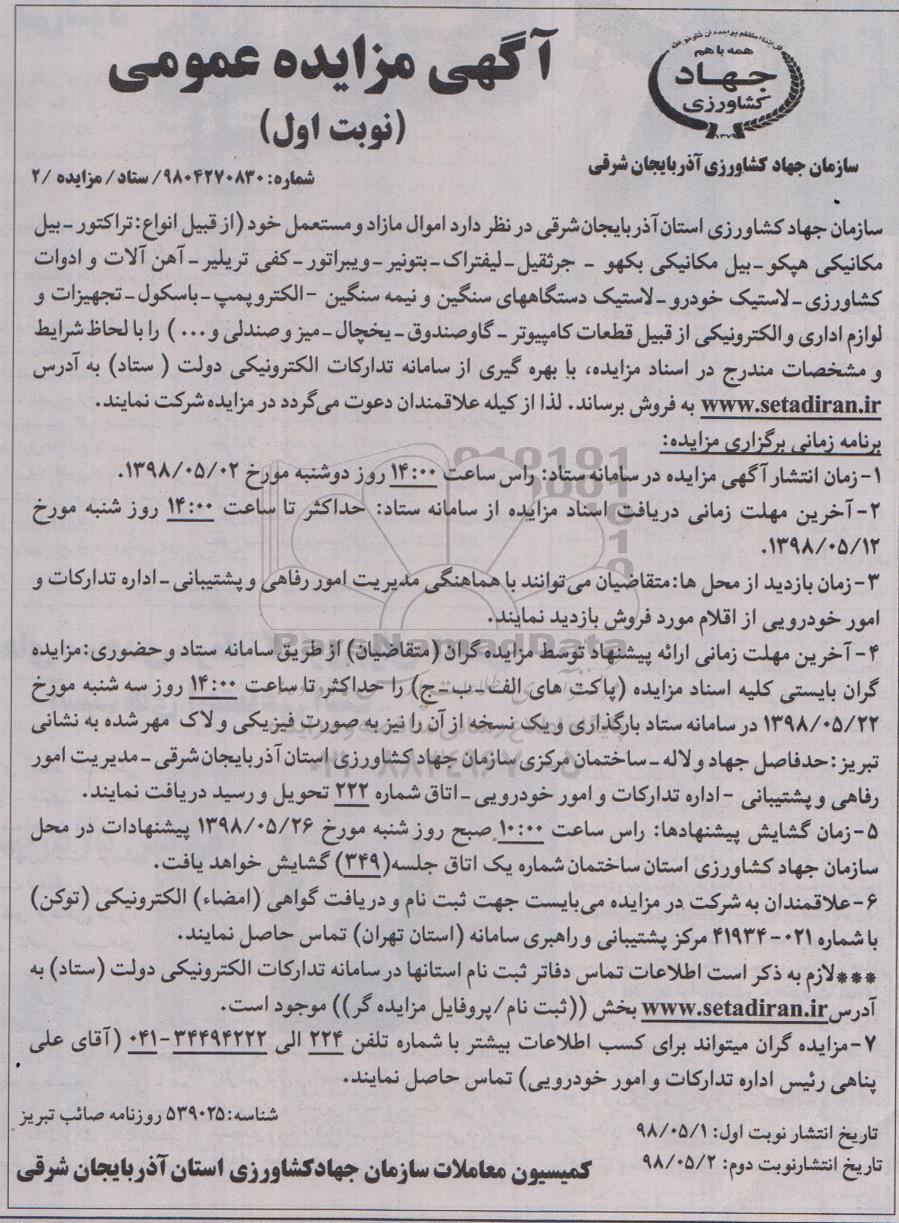 همه با هم
جهاد
کشاورزی
سازمان جهاد کشاورزی آذربایجان شرقی
آگهی مزایده عمومی
(نوبت اول)
شماره: ۹۸۰۴۲۷۰۸۳۰/ ستاد/ مزایده /۲
سازمان جهاد کشاورزی استان آذربایجان شرقی در نظر دارد اموال مازاد و مستعمل خود (از قبیل انواع: تراکتور - بیل
مکانیکی هپکو - بیل مکانیکی بکهو - جرثقیل - لیفتراک - بتونیر - ویبراتور - کفی تریلیر - آهن آلات و ادوات
کشاورزی - لاستیک خودرو - لاستیک دستگاههای سنگین و نیمه سنگین - الکتروپمپ - باسکول - تجهیزات و
لوازم اداری و الکترونیکی از قبیل قطعات کامپیوتر - گاوصندوق - یخچال - میز و صندلی و ... ) را با لحاظ شرایط
و مشخصات مندرج در اسناد مزایده، با بهره گیری از سامانه تدارکات الکترونیکی دولت ( ستاد) به آدرس
www.setadiran.ir به فروش برساند. لذا از کیله علاقمندان دعوت می‌گردد در مزایده شرکت نمایند.
برنامه زمانی برگزاری مزایده:
۱- زمان انتشار آگهی مزایده در سامانه ستاد: راس ساعت ۱۴:۰۰ روز دوشنبه مورخ ۱۳۹۸/۰۵/۰۲.
۲- آخرین مهلت زمانی دریافت اسناد مزایده از سامانه ستاد: حداکثر تا ساعت ۱۴:۰۰ روز شنبه مورخ
۱۳۹۸/۰۵/۱۲.
۳- زمان بازدید از محل ها: متقاضیان می توانند با هماهنگی مدیریت امور رفاهی و پشتیبانی - اداره تدارکات و
امور خودرویی از اقلام مورد فروش بازدید نمایند.
۴- آخرین مهلت زمانی ارائه پیشنهاد توسط مزایده گران (متقاضیان) از طریق سامانه ستاد و حضوری: مزایده
گران بایستی کلیه اسناد مزایده (پاکت های الف - ب - ج) را حداکثر تا ساعت ۱۴:۰۰ روز سه شنبه مورخ
۱۳۹۸/۰۵/۲۲ در سامانه ستاد بارگذاری و یک نسخه از آن را نیز به صورت فیزیکی و لاک مهر شده به نشانی
تبریز: حدفاصل جهاد و لاله - ساختمان مرکزی سازمان جهاد کشاورزی استان آذربایجان شرقی - مدیریت امور
رفاهی و پشتیبانی - اداره تدارکات و امور خودرویی - اتاق شماره ۲۲۲ تحویل و رسید دریافت نمایند.
۵- زمان گشایش پیشنهادها: راس ساعت ۱۰:۰۰ صبح روز شنبه مورخ ۱۳۹۸/۰۵/۲۶ پیشنهادات در محل
سازمان جهاد کشاورزی استان ساختمان شماره یک اتاق جلسه(۳۴۹) گشایش خواهد یافت.
۶- علاقمندان به شرکت در مزایده می‌بایست جهت ثبت نام و دریافت گواهی (امضاء) الکترونیکی (توکن)
با شماره ۰۲۱-۴۱۹۳۴ مرکز پشتیبانی و راهبری سامانه (استان تهران) تماس حاصل نمایند.
***لازم به ذکر است اطلاعات تماس دفاتر ثبت نام استانها در سامانه تدارکات الکترونیکی دولت (ستاد) به
آدرس www.setadiran.ir بخش ((ثبت نام/پروفایل مزایده گر)) موجود است.
۷- مزایده گران میتواند برای کسب اطلاعات بیشتر با شماره تلفن ۲۲۴ الی ۳۴۴۹۴۲۲۲-۰۴۱ (آقای علی
پناهی رئیس اداره تدارکات و امور خودرویی) تماس حاصل نمایند.
شناسه: ۵۳۹۰۲۵ روزنامه صائب تبریز
تاریخ انتشار نوبت اول: ۹۸/۰۵/۱
تاریخ انتشارنوبت دوم: ۹۸/۰۵/۲
کمیسیون معاملات سازمان جهادکشاورزی استان آذربایجان شرقی
ParsNamadData